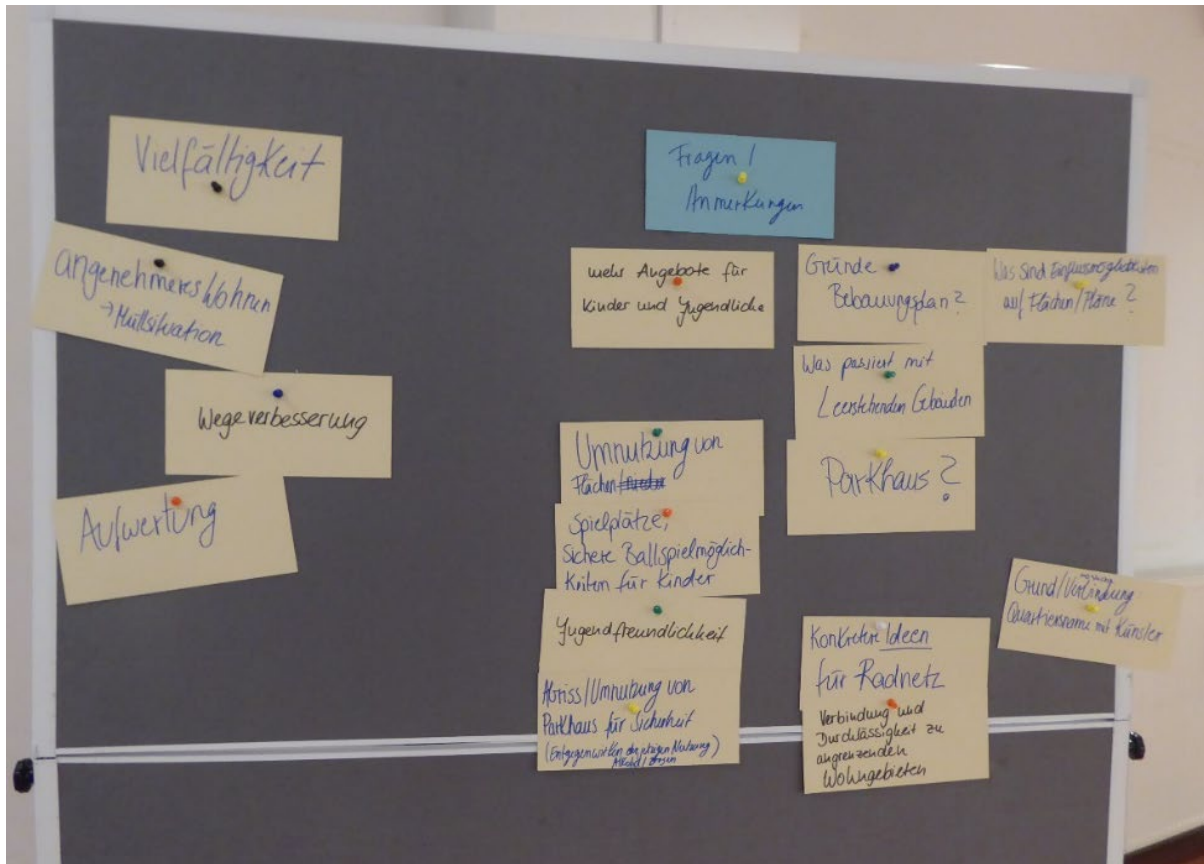 Vielfältigkeit
angenehmeres Wohnen
→ Müllsituation
Wegeverbesserung
Aufwertung
Fragen /
Anmerkungen
mehr Angebote für
Kinder und Jugendliche
Umnutzung von
Flächen/
Spielplätze,
Sichere Ballspielmöglich-
keiten für Kinder
Jugendfreundlichkeit
Abriss/Umnutzung von
Parkhaus für Sicherheit
(Entgegenwirken der jetzigen Nutzung)
Alkohol/Drogen
Gründe
Bebauungsplan?
Was passiert mit
Leerstehenden Gebäuden
Parkhaus?
Konkretere Ideen
für Radnetz
Verbindung und
Durchlässigkeit zu
angrenzenden
Wohngebieten
Was sind Einflussmöglichkeiten
auf Flächen/Pläne?
Grund/Verbindung
Quartiersname mit Künstler